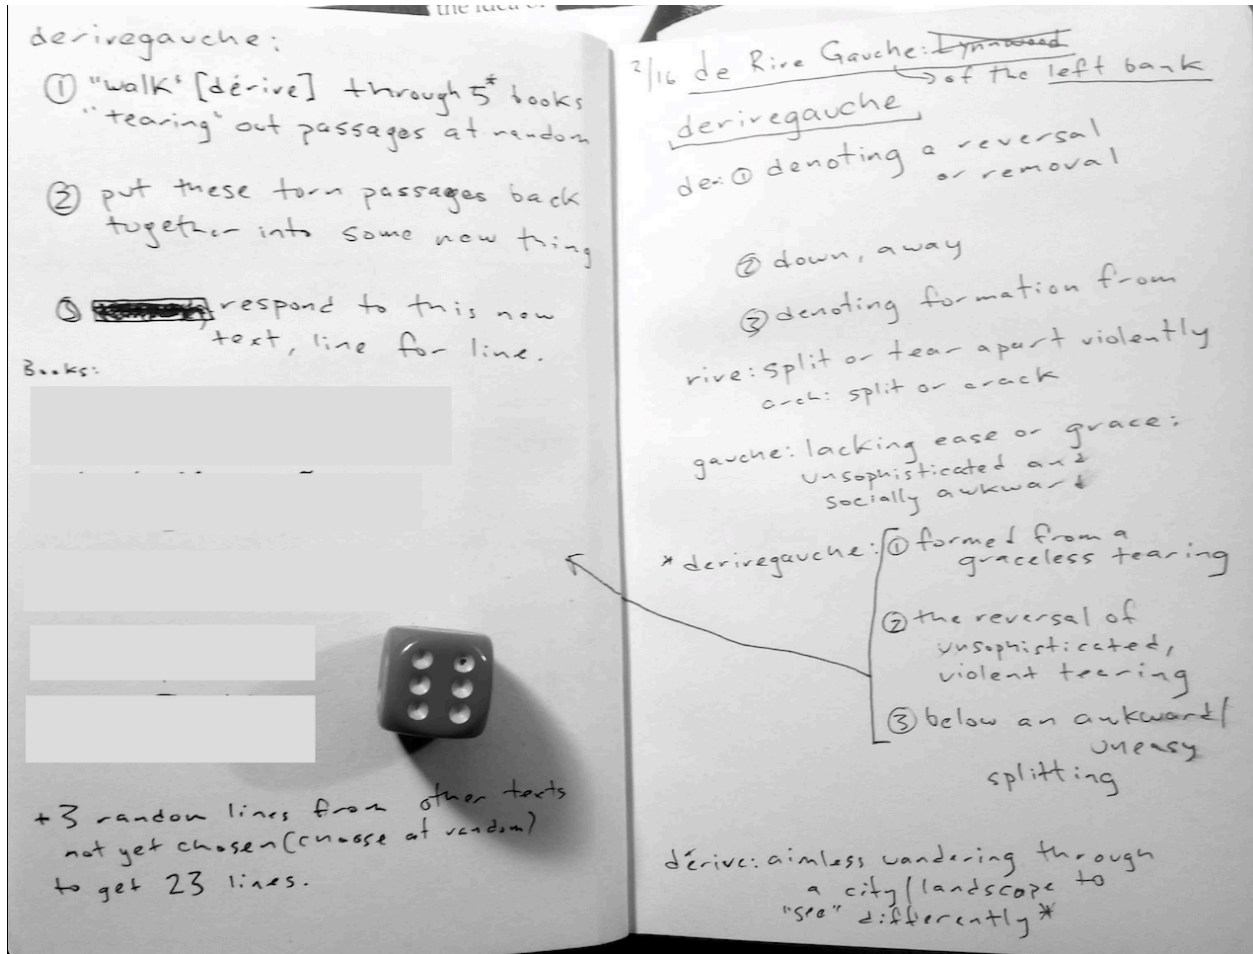 the idea of
derivegauche:
① "walk" [dérive] through 5* books
"tearing" out passages at random
② put these torn passages back
together into some new thing
③ respond to this new
text, line for line.
Books:
+ 3 random lines from other texts
not yet chosen (choose at random)
to get 23 lines.
2/16 de Rive Gauche: Lynnwood
→ of the left bank
derivegauche
de: ① denoting a reversal
or removal
② down, away
③ denoting formation from
rive: split or tear apart violently
arch: split or crack
gauche: lacking ease or grace;
unsophisticated and
socially awkward
* derivegauche: ① formed from a
graceless tearing
② the reversal of
unsophisticated,
violent tearing
③ below an awkward/
uneasy
splitting
dérive: aimless wandering through
a city/landscape to
"see" differently*